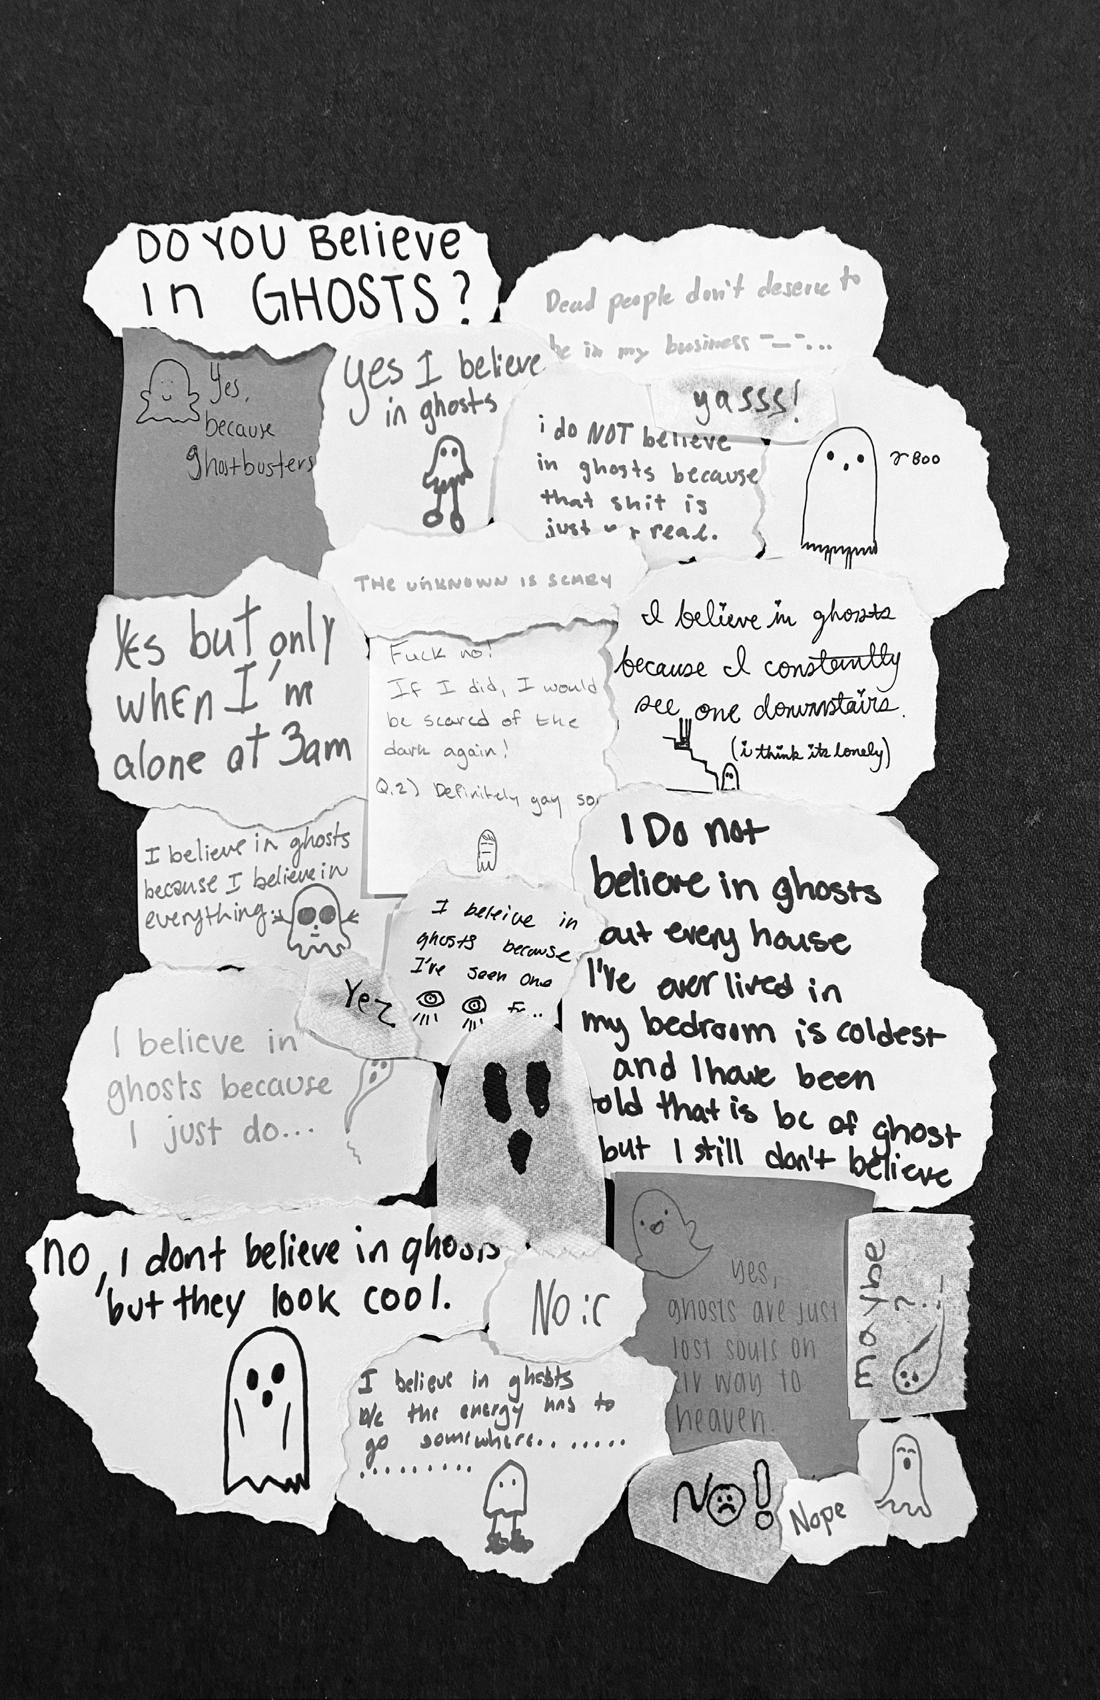 DO YOU Believe
in GHOSTS?
Dead people don't deserve to
be in my business -_-...
Yes,
because
Ghostbusters
yes I believe
in ghosts
yasss!
i do NOT believe
in ghosts because
that shit is
just real.
Boo
THE UNKNOWN IS SCARY
Yes but only
when I'm
alone at 3am
Fuck no!
If I did, I would
be scared of the
dark again!
Q.2) Definitely gay so
I believe in ghosts
because I constantly
see one downstairs.
(i think its lonely)
I believe in ghosts
because I believe in
everything
I beleive in
ghosts because
I've seen one
Yez
I DO not
believe in ghosts
but every house
I've ever lived in
my bedroom is coldest
and I have been
told that is bc of ghost
but I still don't believe
I believe in
ghosts because
I just do...
NO, I dont believe in ghosts
but they look cool.
No :c
yes,
ghosts are just
lost souls on
way to
heaven.
maybe
?
I believe in ghosts
b/c the energy has to
go somewhere.........
.........
NO!
Nope